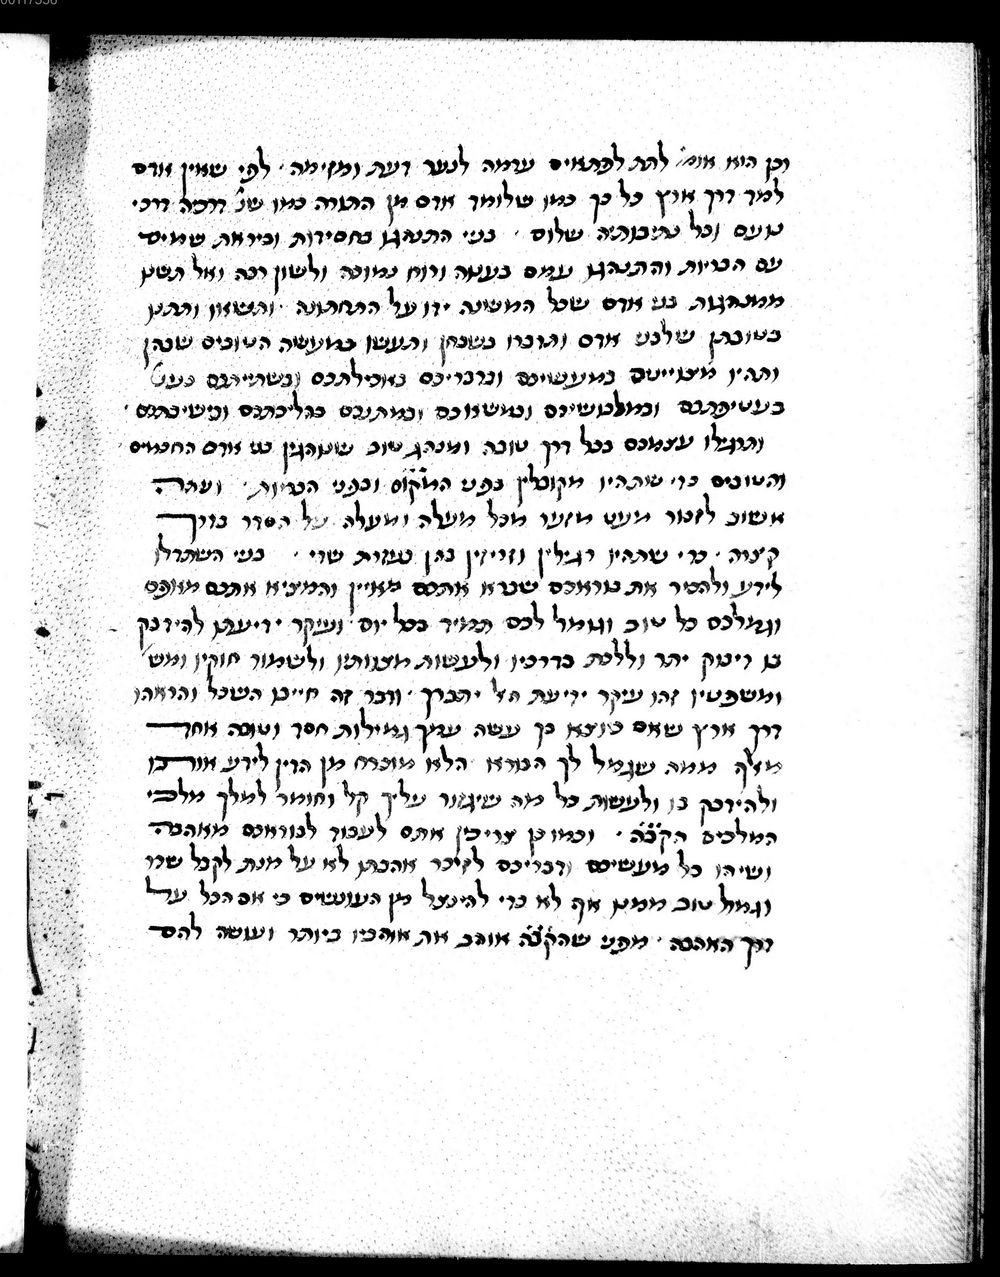 וכן הוא אומ' לתת לפתאים ערמה לנער דעת ומזימה. לפי שאין אדם
למד דרך ארץ כל כך כמו שלומד אדם מן התורה כמו שנ' דרכיה דרכי
נועם וכל נתיבותיה שלום. בני התנהגו בחסידות וביראת שמים
עם הבריות והתנהגו עמם בענוה ורוח נמוכה ולשון רכה ואל תשנו
ממנהגות בני אדם שכל המשנה ידו על התחתונה. ותשאו ותתנו
בטובתן של בני אדם ותדברו בשבחן ותעשו כמעשה הטובים שבהן
ותהיו מצויינים במעשיכם ובדבריכם באכילתכם ובשתייתכם
בעטיפתכם ובמלבושיכם ובמשאכם ובמתנכם בהליכתכם ובישיבתכם.
ותרגילו עצמכם בכל דרך טובה ומנהג טוב שנוהגין בני אדם החכמים
והטובים כדי שתהיו מקובלין בפני המקום ובפני הבריות. ועתה
אשוב לזכור מעט מזער מכל מעלה ומעלה על הסדר בדרך
קצרה. כדי שתהיו רגילין וזריזין בהן בעזרת שדי. בני השתדלו
לידע ולהכיר את בוראכם שברא אתכם מאיין והמציא אתכם מאופס
וגמלכם כל טוב וגומל לכם תמיד בכל יום. ועיקר ידיעתו להידבק
בו דיבוק יתר וללכת בדרכיו ולעשות מצותיו ולשמור חוקיו ומש'
ומשפטיו זהו עיקר ידיעת האל יתברך. ודבר זה חייבו השכל והראהו
דרך ארץ שאם כיוצא בך עשה עמך גמילות חסד וטובה אחד
מאלף ממה שגמל לך הבורא הלא מוכרח מן הדין לידע אותו
ולהידבק בו ולעשות כל מה שיגזור עליך קל וחומר למלך מלכי
המלכים הקבה. וכמו כן צריכין אתם לעבוד לבוראכם מאהבה
ושיהו כל מעשיכם ודבריכם לזיכר אהבתו לא על מנת לקבל שכר
וגמול טוב ממנו אף לא כדי להינצל מן העונשים כי אם הכל על
דרך האהבה. מפני שהקבה אוהב את אוהביו ביותר ועושה להם